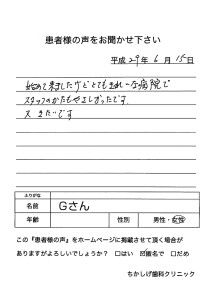 患者様の声をお聞かせ下さい
平成29年6月15日
始めて来ましたけどとてもきれいな病院で
スタッフのかたもやさしかったです。
又きたいです
ふりがな
名前 Gさん
年齢 性別 男性・女性
この『患者様の声』をホームページに掲載させて頂く場合が
ありますがよろしいでしょうか? 口はい 匿名で 口だめ
ちかしげ歯科クリニック